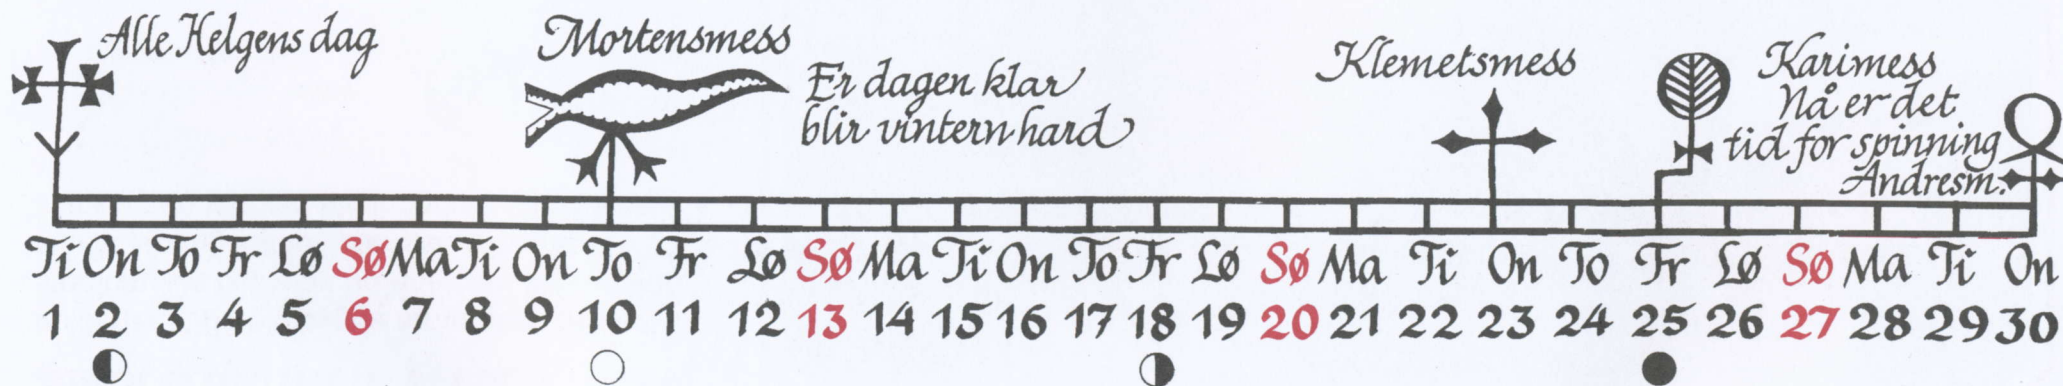 Alle Helgens dag
Mortensmess
Er dagen klar
blir vintern hard
Klemetsmess
Karimess
Nå er det
tid for spinning
Andresm.
Ti On To Fr Lø Sø Ma Ti On To Fr Lø Sø Ma Ti On To Fr Lø Sø Ma Ti On To Fr Lø Sø Ma Ti On
1 2 3 4 5 6 7 8 9 10 11 12 13 14 15 16 17 18 19 20 21 22 23 24 25 26 27 28 29 30